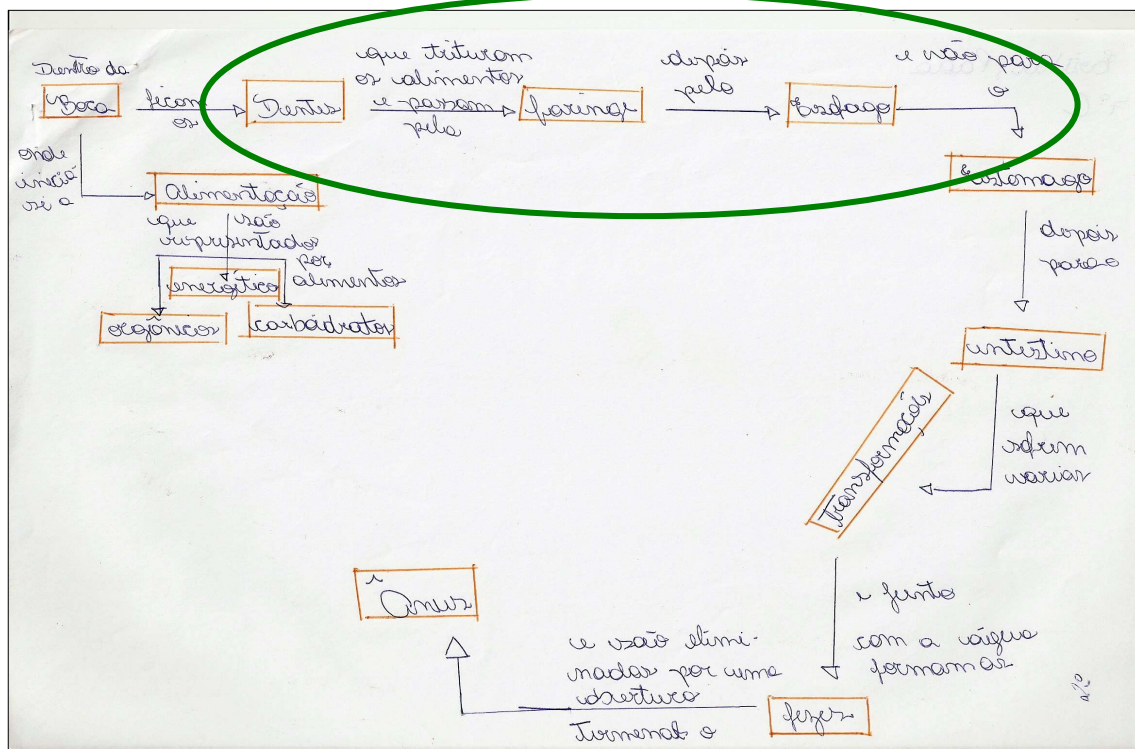 Dentro da
Boca
ficam
os
Dentes
que trituram
os alimentos
e passam
pela
faringe
depois
pelo
Esofago
e vão para
o
Estômago
onde
inicia
se a
alimentação
que são
representados
por
alimentos
energético
orgânicos
carboidratos
depois
para o
intestino
que
sofrem
varias
transformações
e junto
com a água
formam as
fezes
e são elimi-
nadas por uma
abertura
Terminal o
Ânus